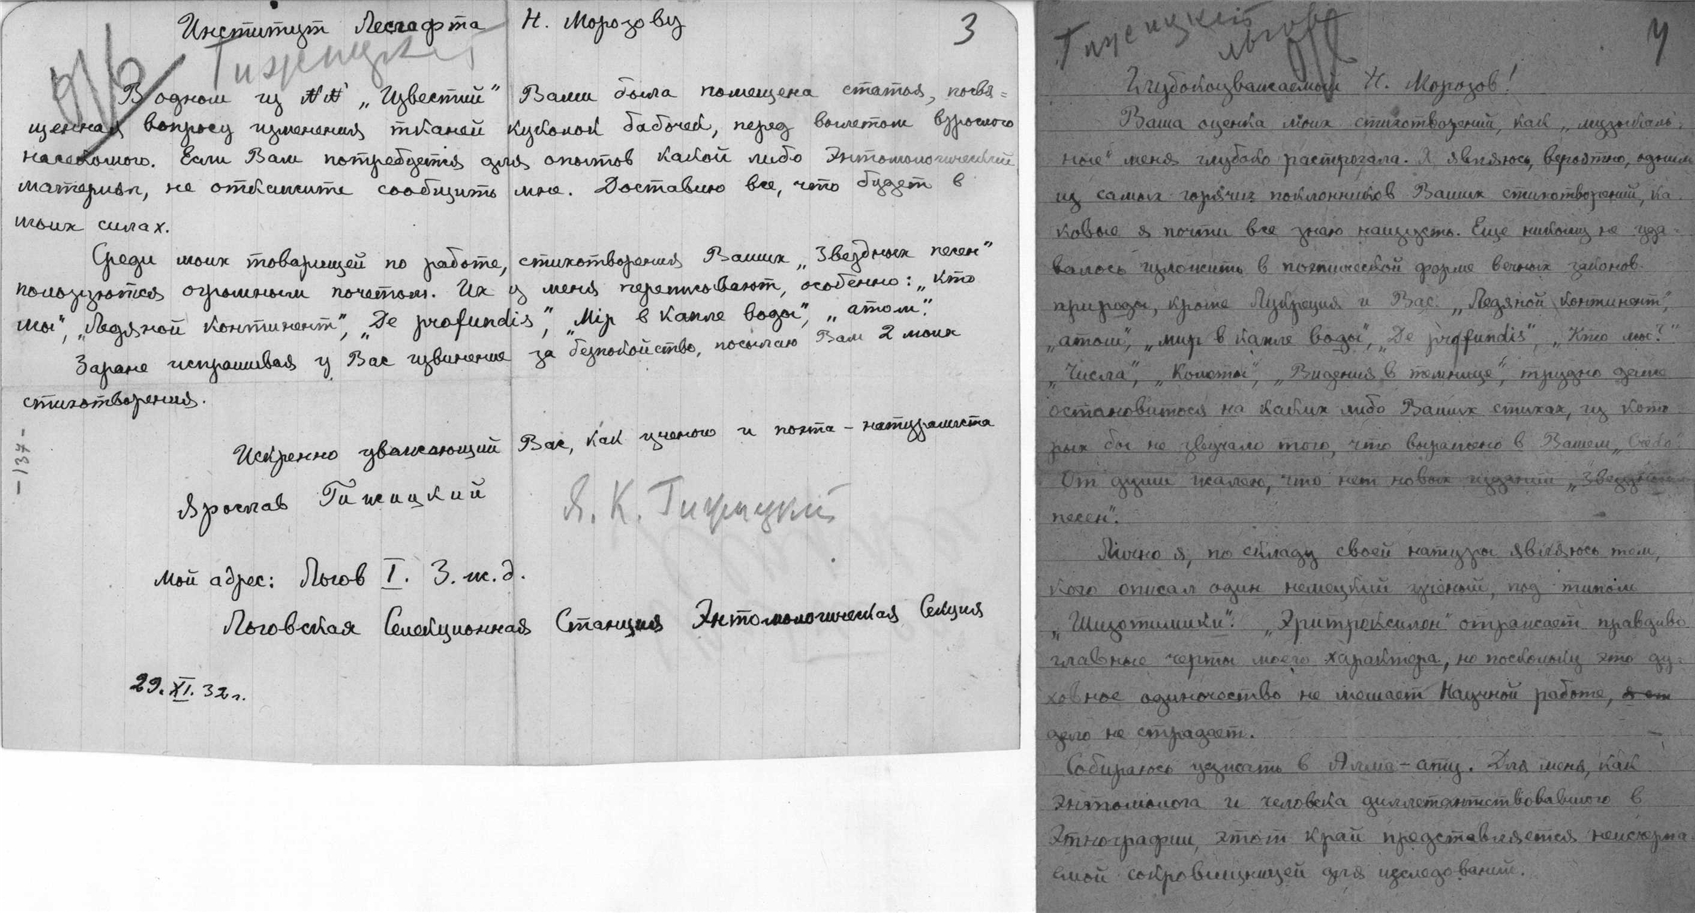 Институт Лесгафта Н. Морозову
3
Гижицкий
В одном из №№ „Известий“ Вами была помещена статья, посвя=
щенная вопросу изменения тканей куколок бабочек, перед вылетом взрослого
насекомого. Если Вам потребуется для опытов какой либо Энтомологический
материал, не откажите сообщить мне. Доставлю все, что будет в
моих силах.
Среди моих товарищей по работе, стихотворения Ваших „Звездных песен“
пользуются огромным почетом. Их у меня переписывают, особенно: „Кто
мы“, „Ледяной континент“, „De profundis“, „Мiр в капле воды“, „атом“.
Заране испрашивая у Вас извинение за безпокойство, посылаю Вам 2 моих
стихотворения.
Искренно уважающий Вас, как ученого и поэта – натуралиста
Ярослав Гижицкий
Я. К. Гижицкий
Мой адрес: Льгов I. З. ж. д.
Льговская Селекционная Станция Энтомологическая Секция
29. XI. 32 г.
-137-
Гижицкий
Льгов
4
Глубокоуважаемый Н. Морозов!
Ваша оценка моих стихотворений, как „музыкаль-
ные“ меня глубоко растрогала. Я являюсь, вероятно, одним
из самых горячих поклонников Ваших стихотворений, ка
ковые я почти все знаю наизусть. Еще никому не уда-
валось изложить в поэтической форме вечных законов
природы, кроме Лукреция и Вас: „Ледяной континент“,
„атом“, „мир в капле воды“, „De profundis“, „Кто мы?“
„Числа“, „Кометы“, „Видения в темнице“, трудно даже
остановиться на каких либо Ваших стихах, из кото
рых бы не звучало того, что выражено в Вашем „Credo“.
От души жалею, что нет новых изданий „Звездных
песен“.
Лично я, по складу своей натуры являюсь тем,
кого описал один немецкий учёный, под типом
„Шизотимики“. „Эритроксилон“ отражает правдиво
главные черты моего характера, но поскольку это ду-
ховное одиночество не мешает Научной работе,
дело не страдает.
Собираюсь уезжать в Алма-ату. Для меня, как
энтомолога и человека диллетантствовавшего в
Этнографии, этот край представляется неисчерпа
емой сокровищницей для исследований.